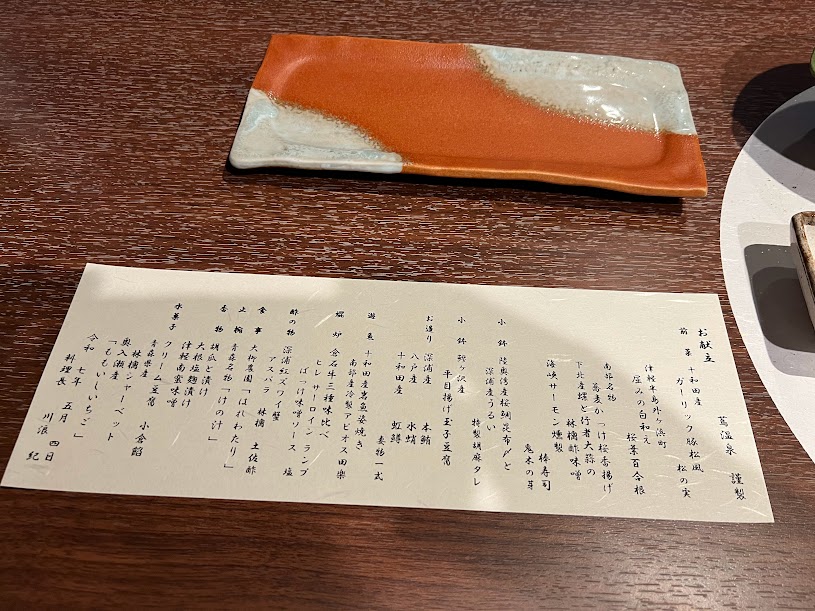 お献立　蔦温泉　謹製
前菜　十和田産　ガーリック豚松風　松の実
津軽半島外ヶ浜町　屈みの白和え　桜葉百合根
南部名物　蕎麦かっけ桜香揚げ
下北産螺と行者大蒜の　林檎酢味噌
海峡サーモン燻製　棒寿司　鬼木の芽
小鉢　陸奥湾産桜鯛昆布〆と　深浦産うるい　特製胡麻タレ
小鉢　鰺ヶ沢産　平目揚げ玉子豆腐
お造り　深浦産　本鮪
八戸産　水蛸
十和田産　虹鱒　妻物一式
遊魚　十和田産岩魚姿焼き　南部産冷製アピオス田楽
焜炉　倉石牛三種味比べ　ヒレ サーロイン ランプ
ばっけ味噌ソース　塩
酢の物　深浦紅ズワイ蟹　アスパラ　林檎　土佐酢
食事　大鰐農園「はれわたり」
止椀　青森名物「けの汁」
香物　胡瓜と漬け　大根塩麹漬け　津軽南蛮味噌
水菓子　クリーム豆腐　小倉餡
青森県産　林檎シャーベット
奥入瀬産「ももいしいちご」
令和　七年　五月　四日
料理長　川浪　紀